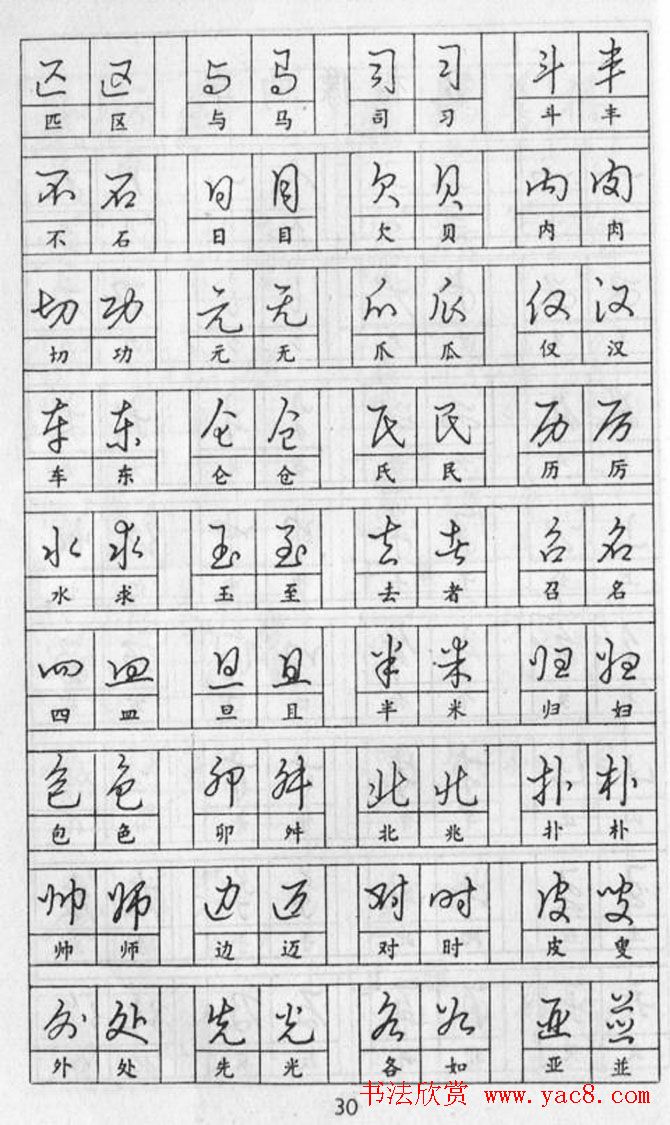 匹 区 与 马 司 习 斗 丰
匹 区 与 马 司 习 斗 丰
不 石 日 目 欠 贝 内 肉
不 石 日 目 欠 贝 内 肉
切 功 元 无 爪 瓜 仅 汉
切 功 元 无 爪 瓜 仅 汉
车 东 仑 仓 氏 民 历 厉
车 东 仑 仓 氏 民 历 厉
水 求 玉 至 去 者 召 名
水 求 玉 至 去 者 召 名
四 皿 旦 且 半 米 归 妇
四 皿 旦 且 半 米 归 妇
包 色 卯 舛 北 兆 扑 朴
包 色 卯 舛 北 兆 扑 朴
帅 师 边 迈 对 时 皮 叟
帅 师 边 迈 对 时 皮 叟
外 处 先 光 各 如 亚 並
外 处 先 光 各 如 亚 並
30 书法欣赏 www.yac8.com